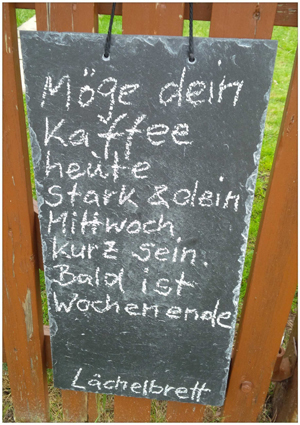 Möge dein
Kaffee
heute
stark & dein
Mittwoch
kurz sein.
Bald ist
Wochenende
Lächelbrett